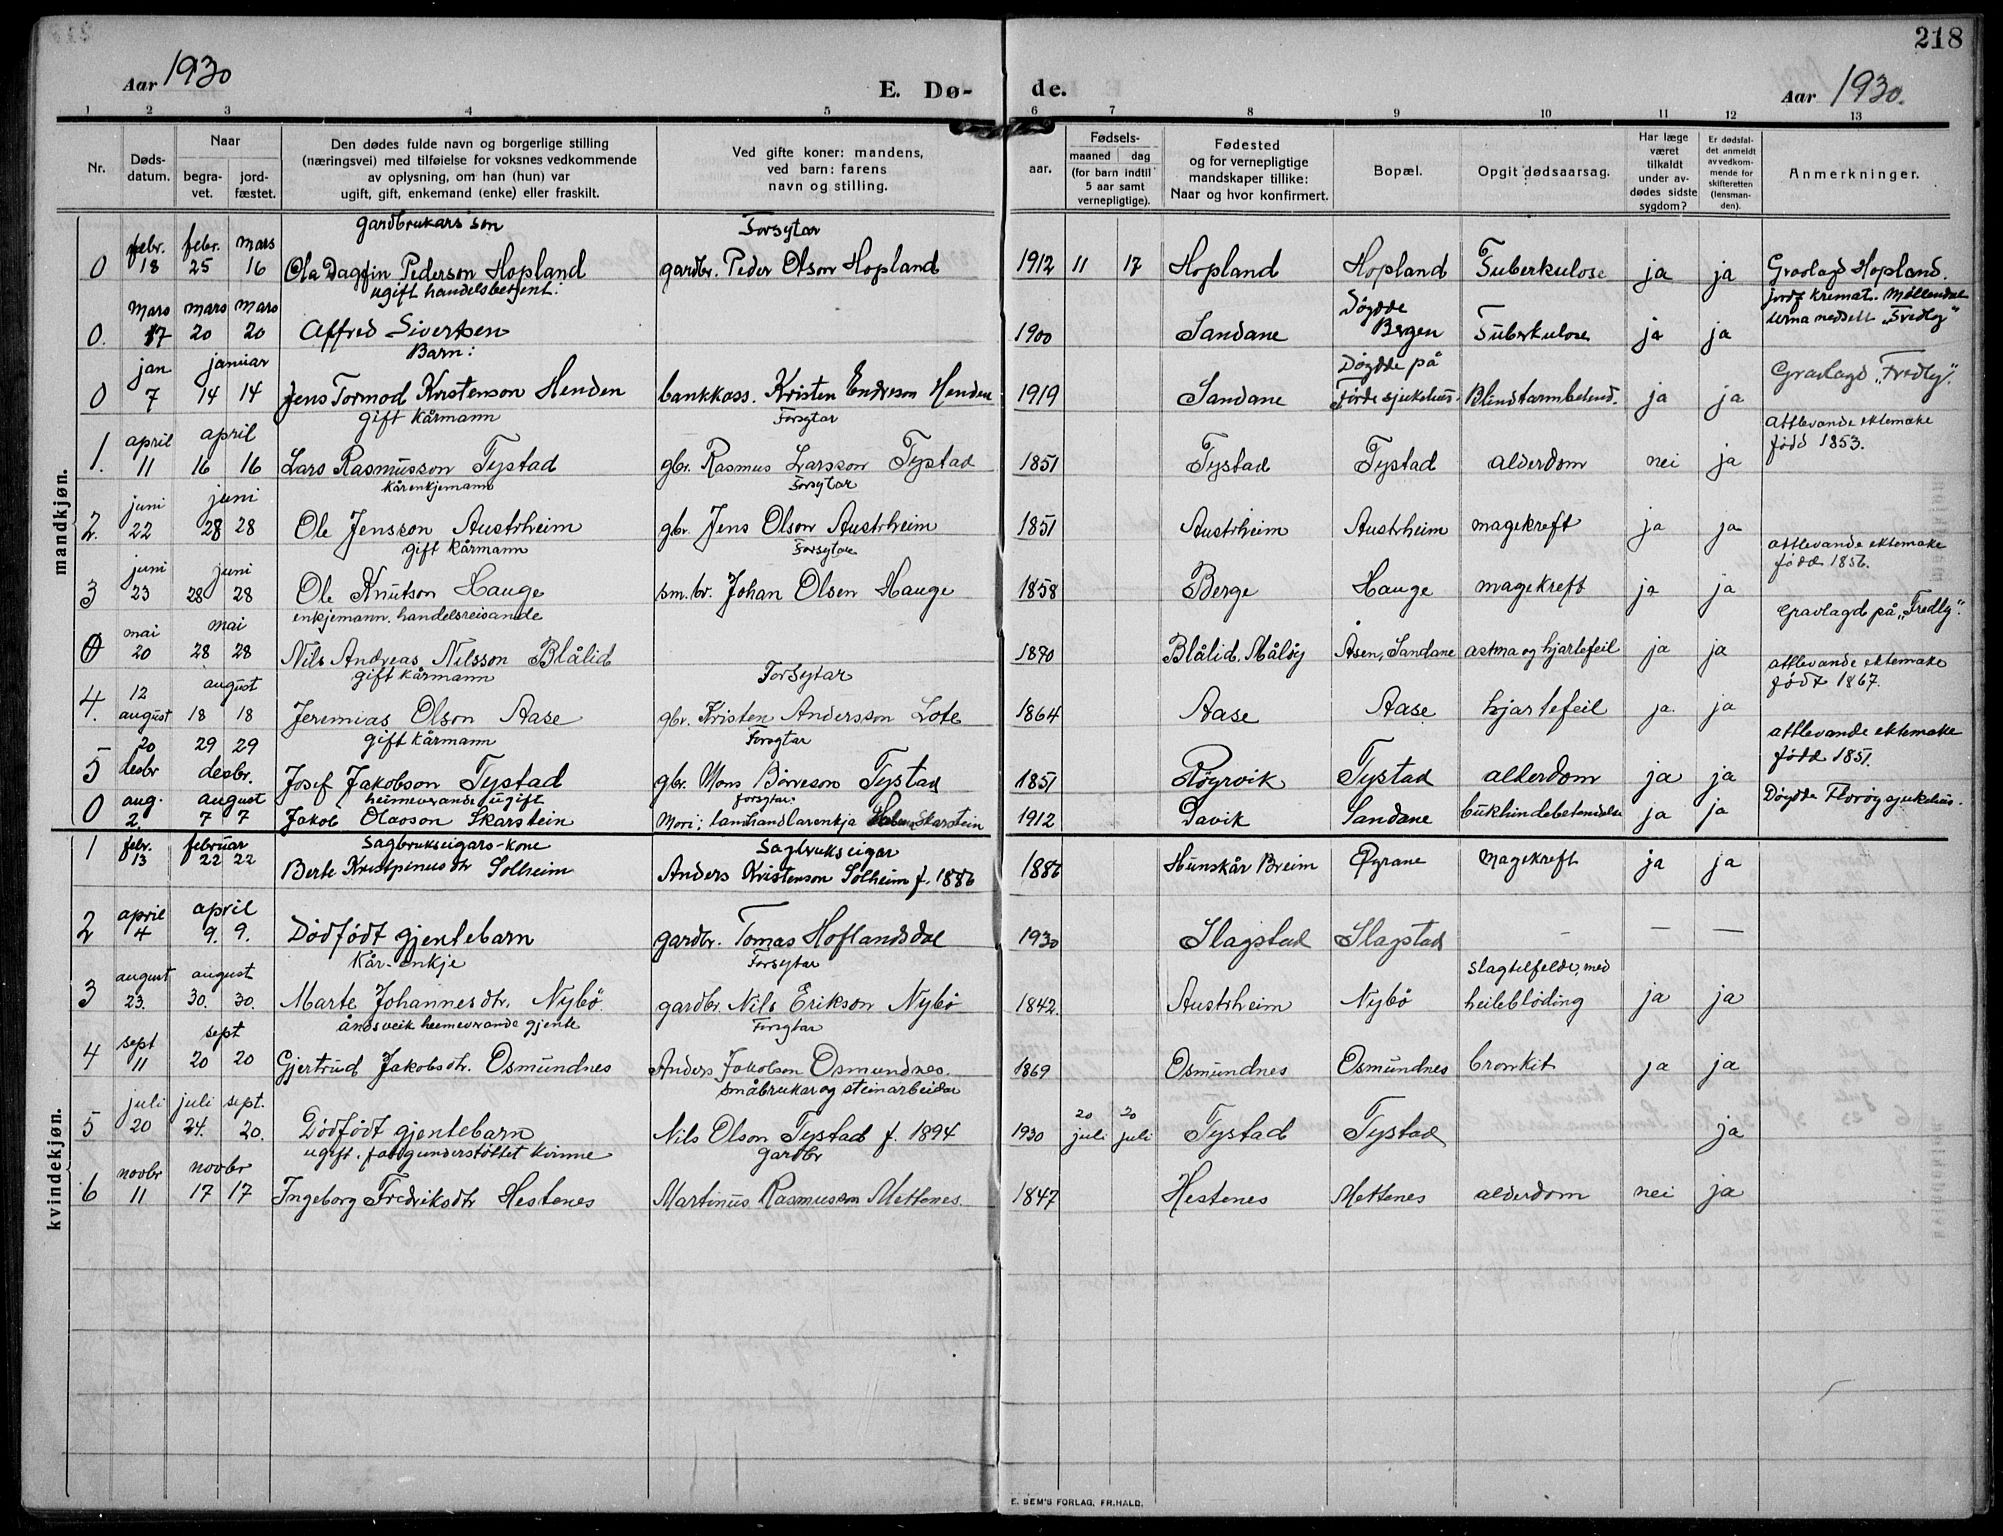 218
Aar 1930
E. Dø-
de.
Aar 1930.
1 2 3 4 5 6 7 8 9 10 11 12 13
Nr.
Døds-
datum.
Naar
begra-
vet.
jord-
fæstet.
Den dødes fulde navn og borgerlige stilling
(næringsvei) med tilføielse for voksnes vedkommende
av oplysning, om han (hun) var
ugift, gift, enkemand (enke) eller fraskilt.
Ved gifte koner: mandens,
ved barn: farens
navn og stilling.
Fødsels-
aar.
maaned dag
(for barn indtil
5 aar samt
vernepligtige).
Fødested
og for vernepligtige
mandskaper tillike:
Naar og hvor konfirmert.
Bopæl.
Opgit dødsaarsag.
Har læge
været
tilkaldt
under av-
dødes sidste
sygdom?
Er dødsfal-
det anmeldt
av vedkom-
mende for
skifteretten
(lensman-
den).
Anmerkninger.
mandkjøn.
gardbrukars son Forsytar
febr. febr. mars
0 18 25 16 Ola Dagfin Pederson Hopland gardbr. Peder Olson Hopland 1912 11 17 Hopland Hopland Tuberkulose ja ja Gravlagd Hopland.
ugift handelsbetjent:
mars mars mars Døydde jordf. kremat. Møllendal
0. 17 20 20 Alfred Sivertsen 1900 Sandane Bergen Tuberkulose ja ja Urna nedsett "Fredly"
Barn:
jan januar Døydde på
0 7 14 14 Jens Tormod Kristenson Henden bankkass. Kristen Endreson Henden 1919 Sandane Førde sjukehus. Blindtarmbetend. ja ja Gravlagd "Fredly".
gift kårmann Forsytar
april april attlevande ektemake
1. 11 16 16 Lars Rasmusson Tystad gbr. Rasmus Larsson Tystad 1851 Tystad Tystad alderdom nei ja født 1853.
kårenkjemann Forsytar
juni juni
2. 22 28 28 Ole Jensson Austrheim gbr. Jens Olson Austrheim 1851 Austrheim Austrheim magekreft ja ja
gift kårmann Forsytar
juni juni attlevande ektemake
3 23 28 28 Ole Knutson Hauge sm.br. Johan Olsen Hauge 1858 Berge Hauge magekreft ja ja født 1856.
enkjemann, handelsreisande
mai mai
0 20 28 28 Nils Andreas Nilsson Blålid 1890 Blålid, Måløy Åsen, Sandane astma og hjartefeil ja ja Gravlagd på "Fredly".
gift kårmann Forsytar
12 august attlevande ektemake
4. august 18 18 Jeremias Olson Aase gbr. Kristen Andersson Lote 1864 Aase Aase hjartefeil ja ja født 1867.
gift kårmann Forsytar
20 29 29 attlevande ektemake
5 desbr desbr. Josef Jakobson Tystad gbr. Mons Børreson Tystad 1851 Røyrvik Tystad alderdom ja ja født 1851.
heimeverande ugift forsytar:
aug. august
0 2. 7 7 Jakob Olavson Skarstein Mori; landhandlarenkja Skarstein 1912 Davik Sandane bukhindebetendelse ja ja Døydde Florøy sjukehus.
kvindekjøn.
Sagbrukseigars-kone Sagbrukseigar
febr. februar
1 13 22 22 Berte Kristpinusdtr Solheim Anders Kristenson Solheim f. 1886 1886 Hunskår Breim Øyrane Magekreft ja ja
april april
2 4 9. 9. Dødfødt gjentebarn gardbr. Tomas Hoflandsdal 1930 Slagstad Slagstad - - -
Kår-enkje Forsytar
august august slagtilfelde, med
3 23. 30. 30. Marte Johannesdtr. Nybø. gardbr. Nils Erikson Nybø 1842. Austrheim Nybø heileblöding ja ja
åndsveik heimeverande gjente Forsytar
sept sept
4 11 20 20 Gjertrud Jakobsdtr. Osmundnes Anders Jakobson Osmundnes. 1869 Osmundnes Osmundnes bronkit ja ja
småbrukar og steinarbeidar
juli juli sept. 20 20
5 20 24. 20. Dødfødt gjentebarn Nils Olson Tystad f. 1894 1930 juli juli Tystad Tystad ja
ugift, fattigunderstøttet kvinne gardbr
novbr novbr
6 11 17 17 Ingeborg Fredriksdtr Hestenes Martinus Rasmusson Mettenes. 1847 Hestenes Mettenes alderdom nei ja
E. SEM'S FORLAG, FR.HALD.